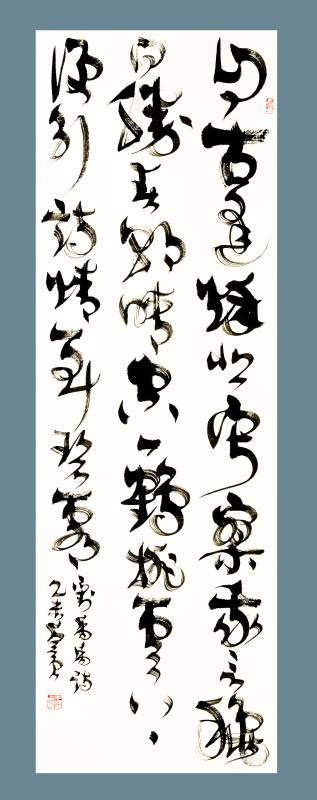 自古逢秋悲寂寥我言秋
日勝春朝晴空一鶴排雲上
便引詩情到碧霄
劉禹錫詩
乙未